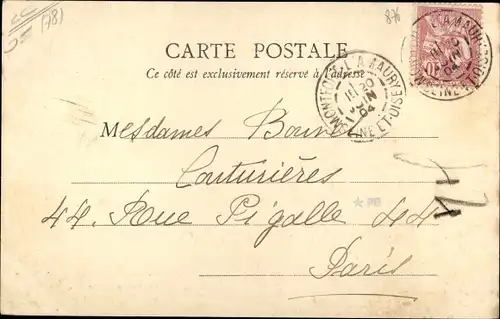 (78)
876
CARTE POSTALE
Ce côté est exclusivement réservé à l'adresse
MONTFORT-L'AMAURY SEINE-ET-OISE
20
JUIN
04
Mesdames
Couturières
44 Rue Pigalle 44
Paris